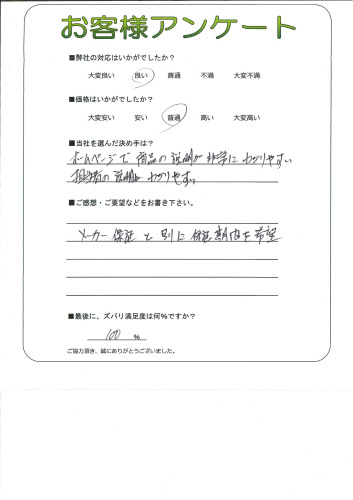 お客様アンケート
■弊社の対応はいかがでしたか?
大変良い 良い 普通 不満 大変不満
■価格はいかがでしたか?
大変安い 安い 普通 高い 大変高い
■当社を選んだ決め手は?
ホームページで商品の説明が非常にわかりやすい
担当者の説明がわかりやすい
■ご感想・ご要望などをお書き下さい。
メーカー保証と別に保証期間を希望
■最後に、ズバリ満足度は何%ですか?
100 %
ご協力頂き、誠にありがとうございました。